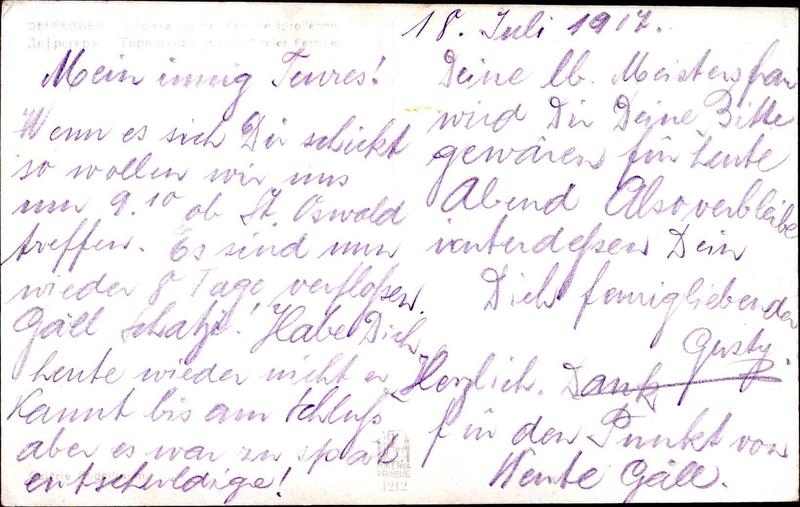 18. Juli 1917.
Mein innig Teures!
Wenn es sich Dir schickt
so wollen wir uns
um 9.10 ob St. Oswald
treffen. Es sind nun
wieder 8 Tage verfloßen.
Gäll Schatzi! Habe Dich
heute wieder nicht er
kannt bis am Schluß
aber es war zu spät
entschuldige!
Deine lb. Meistersfrau
wird Dir Deine Bitte
gewären für heute
Abend Also verbleibe
interdeßen Dein
Dich feurigliebender
Gusty.
Herzlich. Dank
für den Punkt von
Heute Gäll.
DEFREGGER
Дефреггеръ
MINERVA
PRAGUE
1212